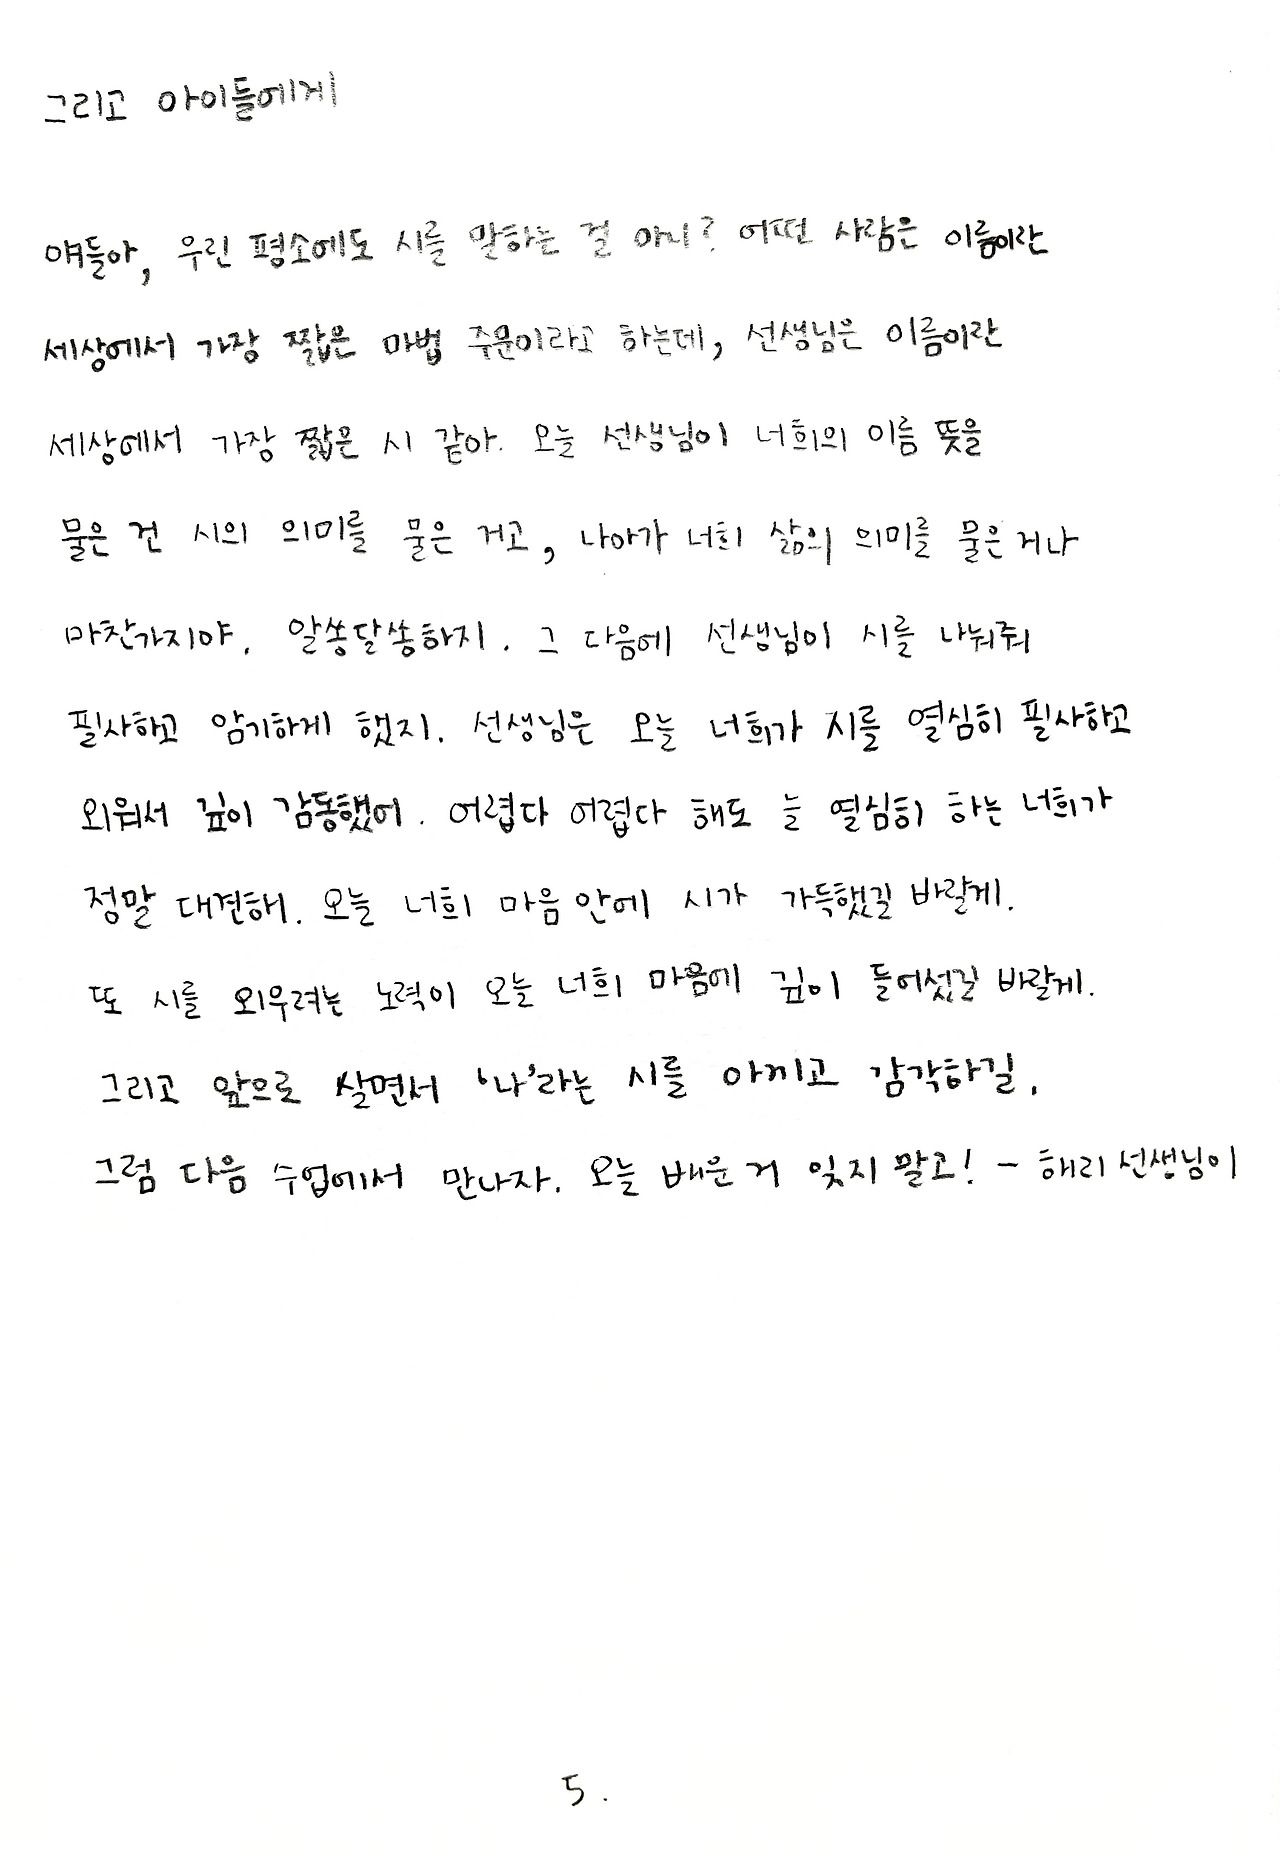 그리고 아이들에게
얘들아, 우린 평소에도 시를 말하는 걸 아니? 어떤 사람은 이름이란
세상에서 가장 짧은 마법 주문이라고 하는데, 선생님은 이름이란
세상에서 가장 짧은 시 같아. 오늘 선생님이 너희의 이름 뜻을
물은 건 시의 의미를 물은 거고, 나아가 너희 삶의 의미를 물은거나
마찬가지야. 알쏭달쏭하지. 그 다음에 선생님이 시를 나눠줘
필사하고 암기하게 했지. 선생님은 오늘 너희가 시를 열심히 필사하고
외워서 깊이 감동했어. 어렵다 어렵다 해도 늘 열심히 하는 너희가
정말 대견해. 오늘 너희 마음 안에 시가 가득했길 바랄게.
또 시를 외우려는 노력이 오늘 너희 마음에 깊이 들어섰길 바랄게.
그리고 앞으로 살면서 '나'라는 시를 아끼고 감각하길.
그럼 다음 수업에서 만나자. 오늘 배운 거 잊지 말고! - 해리 선생님이
5.